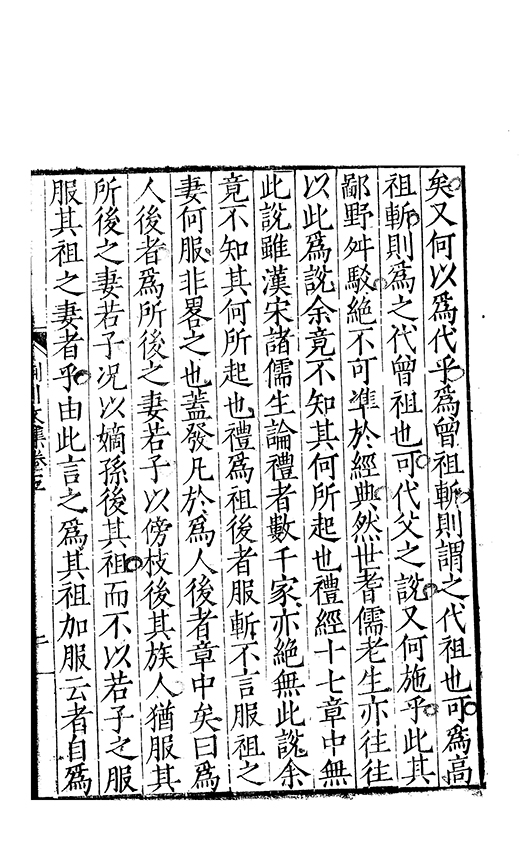 矣又何以爲代乎爲曾祖斬則謂之代祖也可爲高
祖斬則爲之代曾祖也可代父之說又何施乎此其
鄙野舛駁絕不可凖於經典然世耆儒老生亦往往
以此爲說余竟不知其何所起也禮經十七章中無
此說雖漢宋諸儒生論禮者數千家亦絕無此說余
竟不知其何所起也禮爲祖後者服斬不言服祖之
妻何服非畧之也蓋發凡於爲人後者章中矣曰爲
人後者爲所後之妻若子以傍枝後其族人猶服其
所後之妻若子况以嫡孫後其祖而不以若子之服
服其祖之妻者乎由此言之爲其祖加服云者自爲
川文集卷五